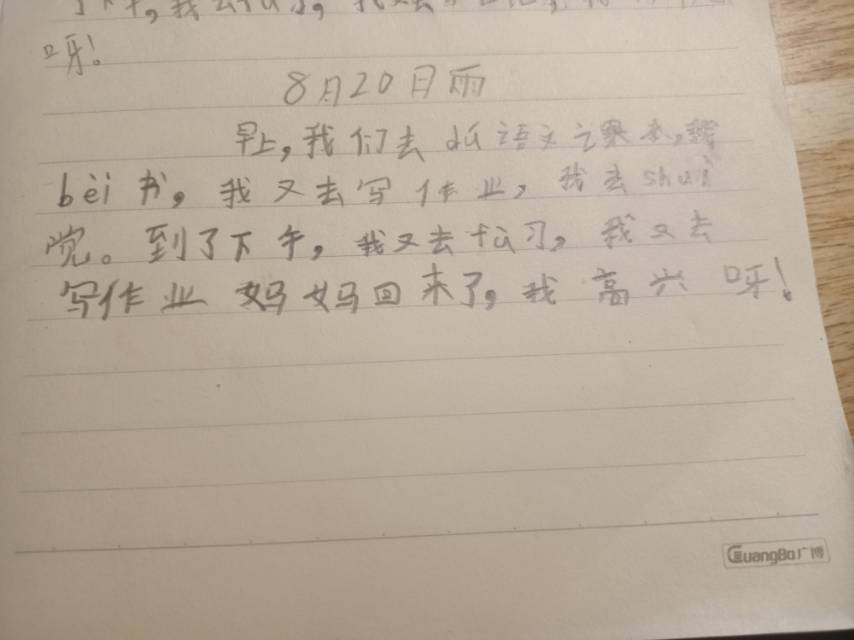 下午,我去
呀!
8月20日雨
早上,我们去 dú 语文之课本,我
bèi 书,我又去写作业,我去 shuì
觉。到了下午,我又去fù习,我又去
写作业 妈妈回来了,我 高兴 呀!
GuangBo广博